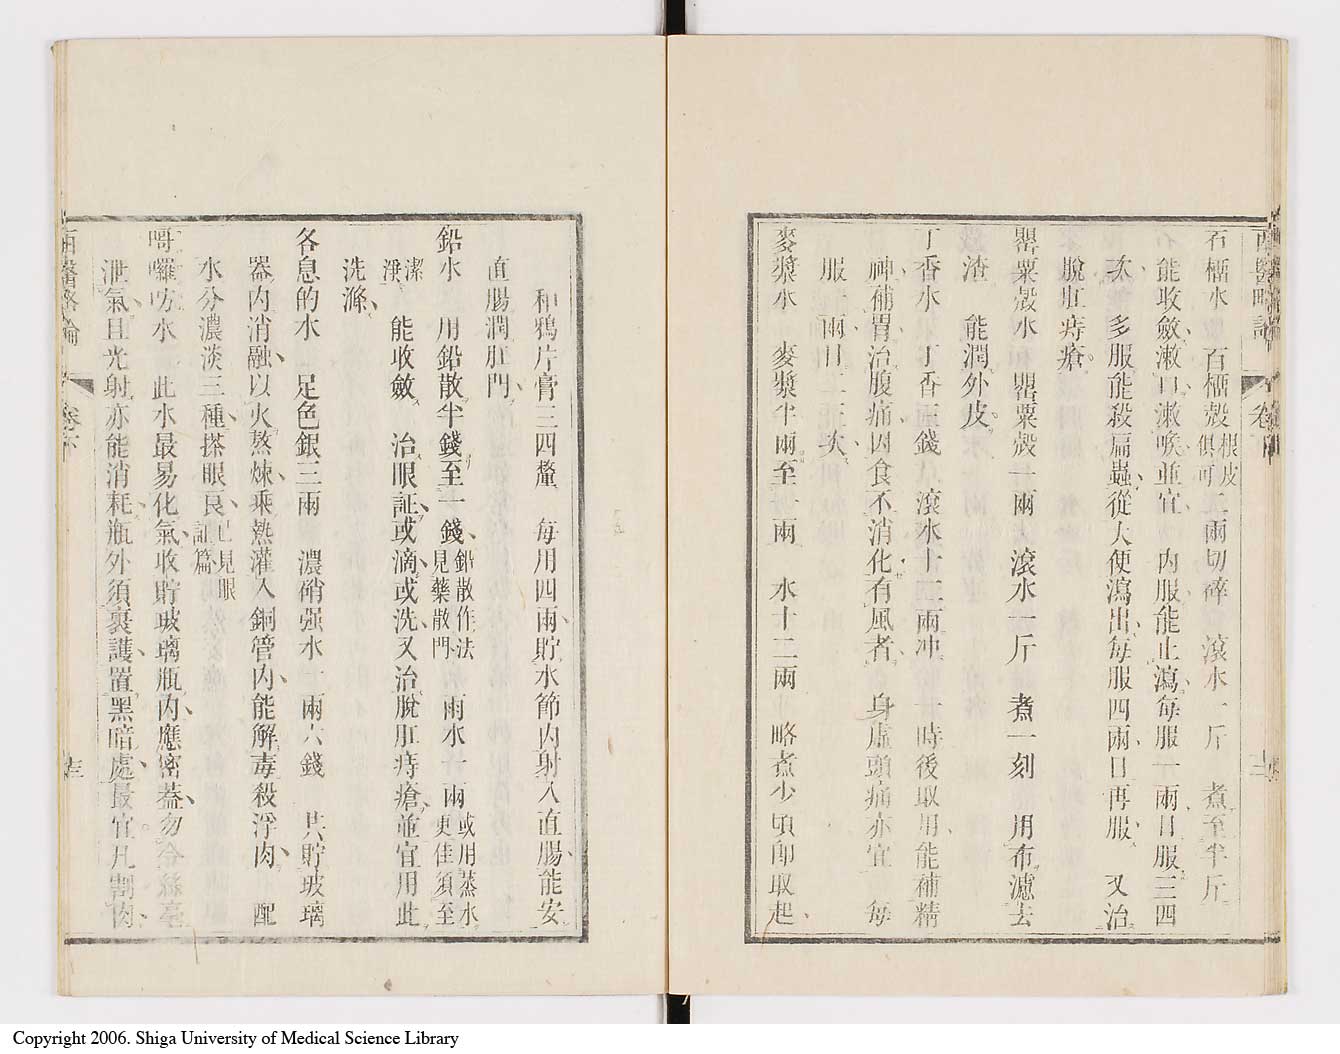 西醫略論
卷下
石榴水 石榴殼根皮俱可二兩切碎 滾水一斤 煮至半斤
能收斂漱口漱喉並宜 內服能止瀉每服一兩日服三四
次 多服能殺扁蟲從大便瀉出每服四兩日再服 又治
脫肛痔瘡
罌粟殼水 罌粟殼一兩 滾水一斤 煮一刻 用布濾去
渣 能潤外皮
丁香水 丁香二錢 滾水十二兩冲 一時後取用能補精
神補胃治腹痛因食不消化有風者 身虛頭痛亦宜 每
服一兩日二三次
麥漿水 麥漿半兩至一兩 水十二兩 略煮少頃卽取起
和鴉片膏三四釐 每用四兩貯水節內射入直腸能安
直腸潤肛門
鉛水 用鉛散半錢至一錢鉛散作法見藥散門 雨水一兩或用蒸水更佳須至
潔淨 能收斂 治眼証或滴或洗又治脫肛痔瘡並宜用此
洗滌
各息的水 足色銀三兩 濃硝强水一兩六錢 共貯玻璃
器內消融以火熬煉乘熱灌入銅管內能解毒殺浮肉 配
水分濃淡三種搽眼艮已見眼証篇
哥囉吩水 此水最易化氣收貯玻璃瓶內應密蓋勿令絲毫
泄氣且光射亦能消耗瓶外須裹護置黑暗處最宜凡割肉
西醫略論
卷下
十三